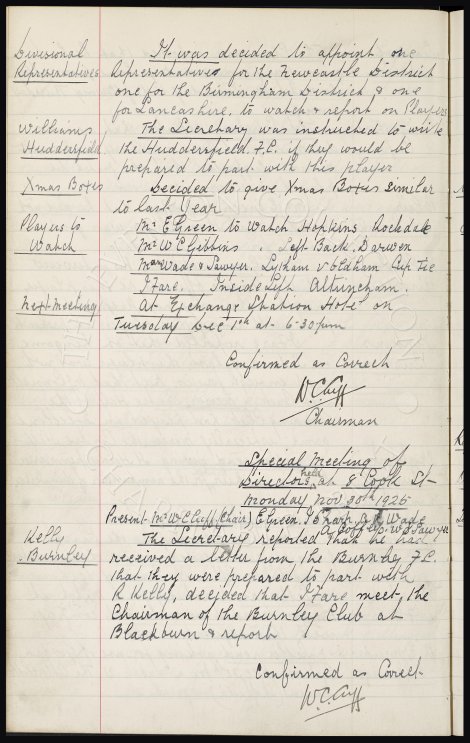 Divisional
Representatives
It was decided to appoint one
Representatives for the Newcastle District
one for the Birmingham District & one
for Lancashire, to watch & report on Players
Williams
Huddersfield
The Secretary was instructed to write
the Huddersfield F.C. if they would be
prepared to part with this player
Xmas Boxes
Decided to give Xmas Boxes similar
to last year
Players to
Watch
Mr E Green to Watch Hopkins, Rochdale
Mr W E Gibbins . Left Back, Darwen
Wade & Sawyer. Lytham v Oldham Cup Tie
J Fare. Inside Left Altrincham.
Next Meeting
At Exchange Station Hotel on
Tuesday Dec 1st at 6-30 p.m
Confirmed as Correct
W.C. Cuff
Chairman
Special Meeting of
Directors held at 8 Cook St
Monday Nov 30th 1925
Present Mr W C Cuff (Chair) E Green J Sharp A R Wade
W J Sawyer
Kelly
Burnley
The Secretary reported that he had
received a letter from the Burnley F.C.
that they were prepared to part with
R Kelly, decided that J Fare meet, the
Chairman of the Burnley Club at
Blackburn & report
Confirmed as Correct
W.C. Cuff